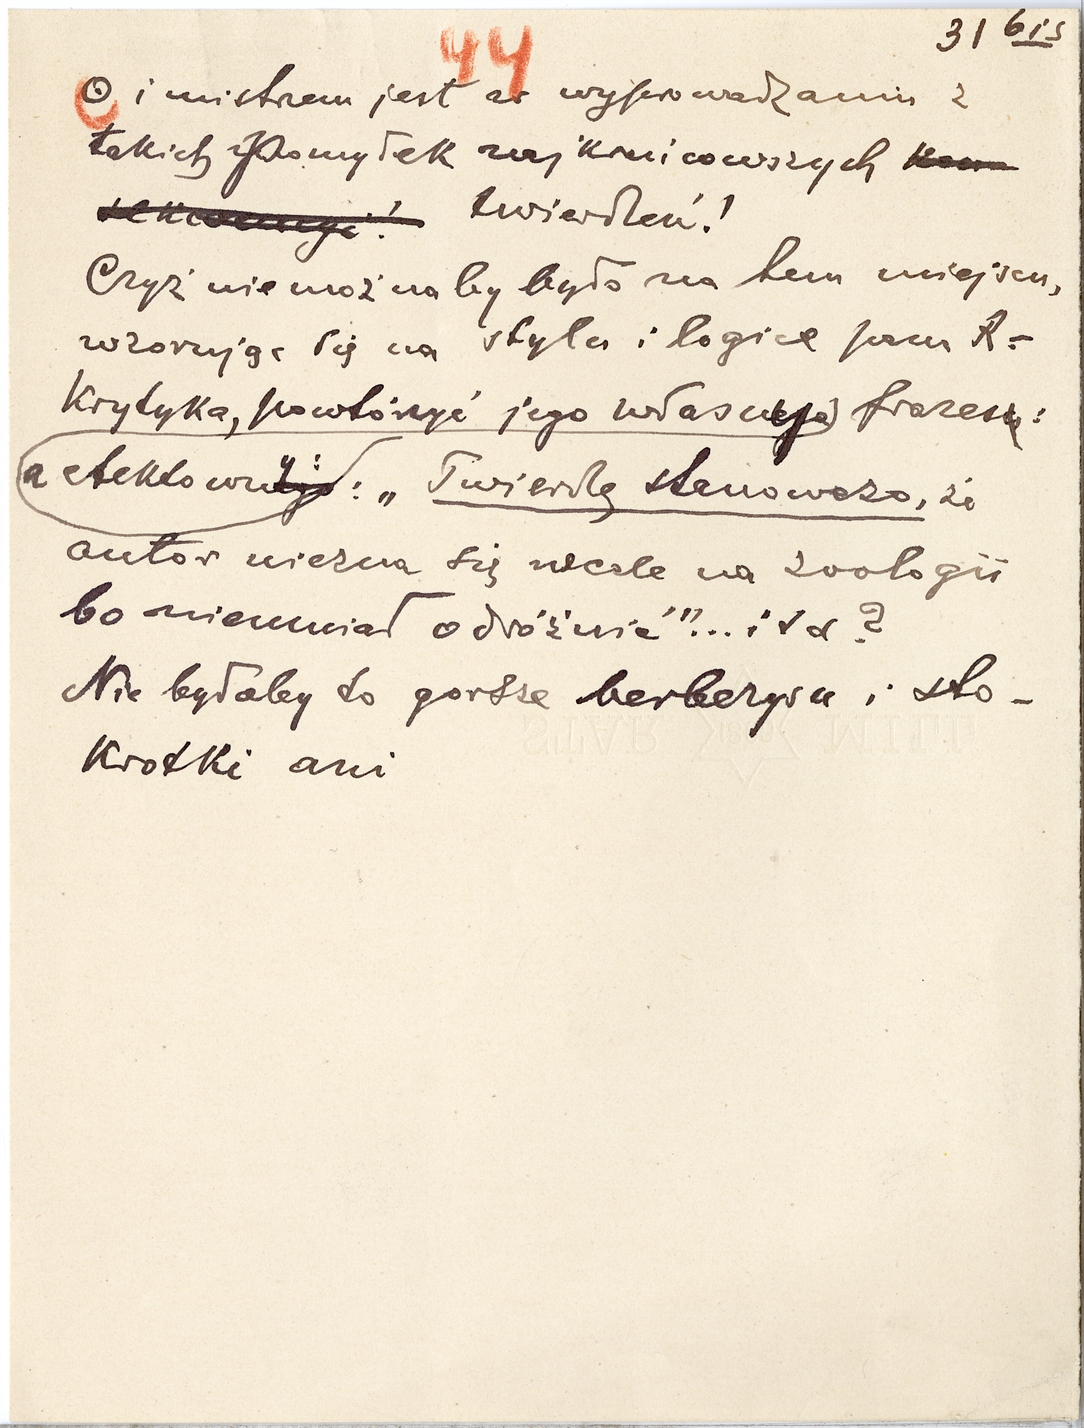 31 bis
44
⊙ i mistrzem jest w wyprowadzaniu z
takich pomyłek najkrańcowszych kon-
sekwencyi! twierdzeń!
Czyż nie możnaby było na tem miejscu,
wzorując się na stylu i logice pana R-
Krytyka, powtórzyć jego własne frazesy:
a efektowny: „Twierdzę stanowczo, że
autor niezna się wcale na zoologii
bo nieumiał odróżnić"... i t d ?
Nie byłaby to gorsze berberysu i sto-
krotki ani
STAR MILL